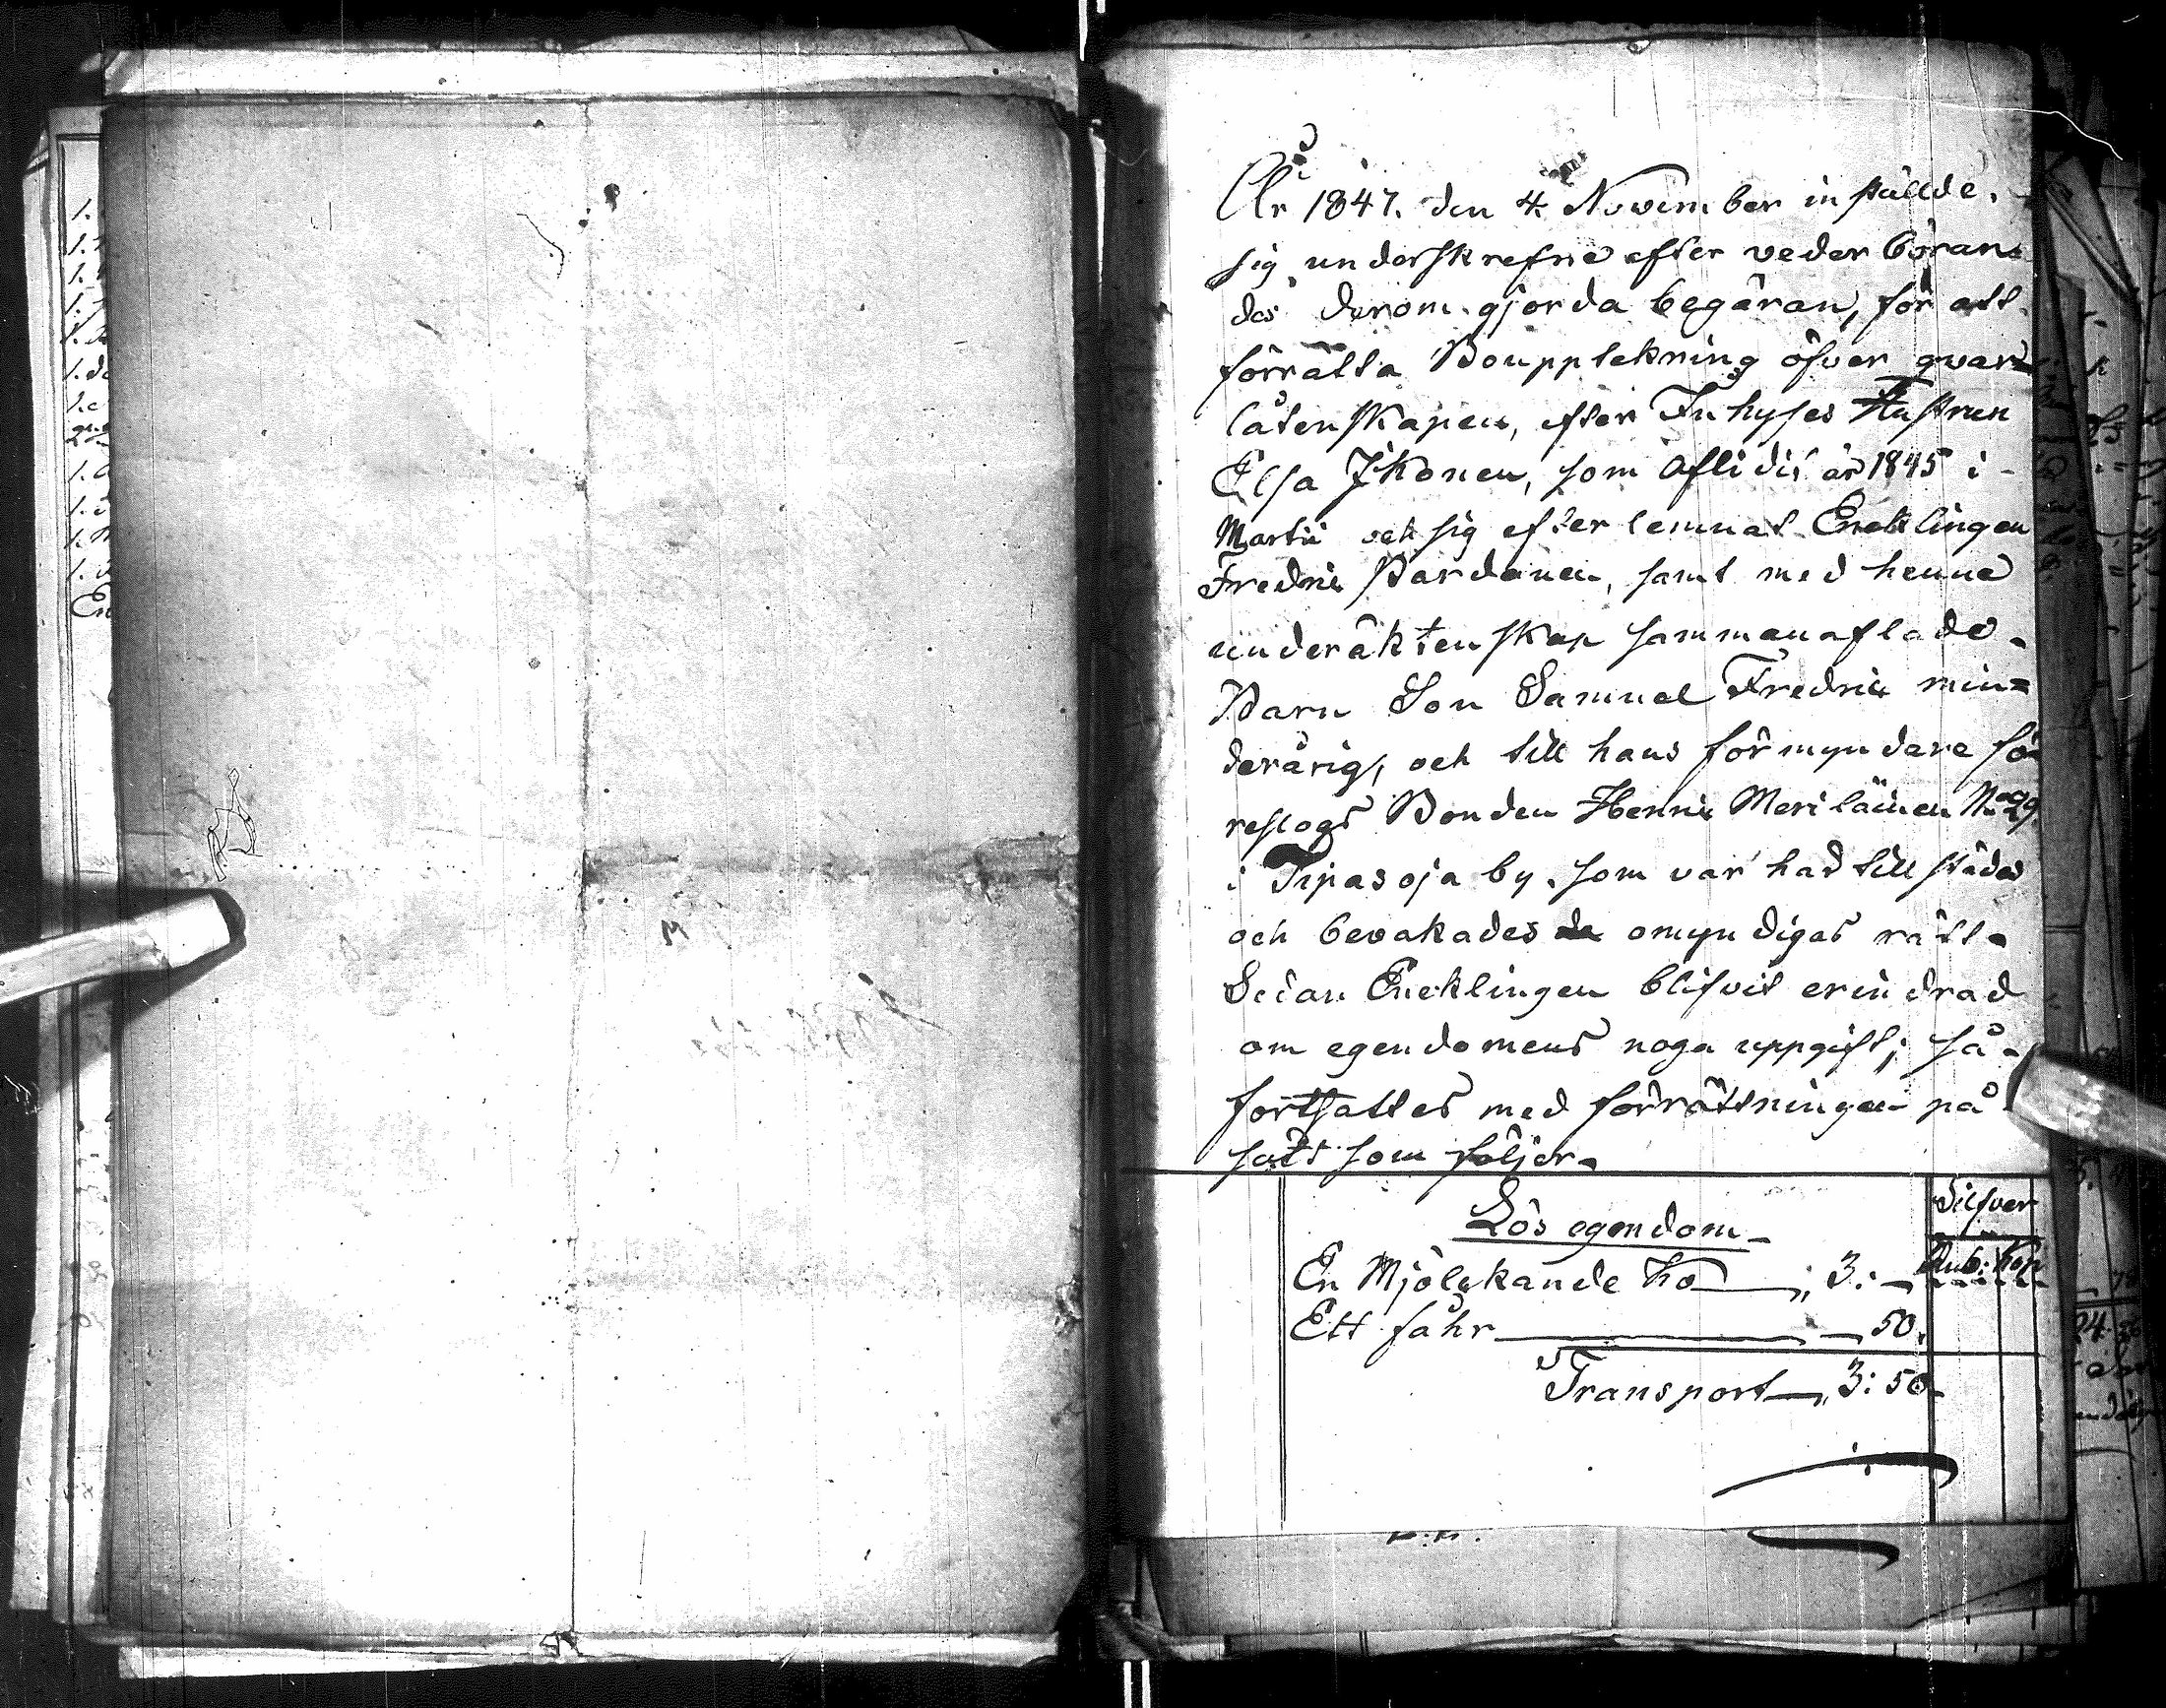 År 1847. den 4. November inställde.
sig underskrefne efter vederböran=
des derom gjorda begäran, för att
förrätta Bouppteckning öfver qvar=
låtenskapen, efter Inhyses Hustrun
Elsa Ikonen, som aflidit år 1845 i
Martii och sig efterlemnat Encklingen
Fredric Pardanen, samt med henne
under äktenskap sammanaflade
Barn Son Samuel Fredric min=
derårig, och till hans förmyndare fö=
reslogs Bonden Henric Meriläinen No 29
i Tipasoja by. som var har tillstädes
och bevakades de omyndigas rätt.
Sedan Encklingen blifvit erindrad
om egendomens noga uppgift; så
fortsattes med förrättningen på
sätt som följer.
Silfver
Lös egendom
Rub: Kop
En Mjölckande ko 3: —
Ett fåhr — 50.
Transport 3: 50